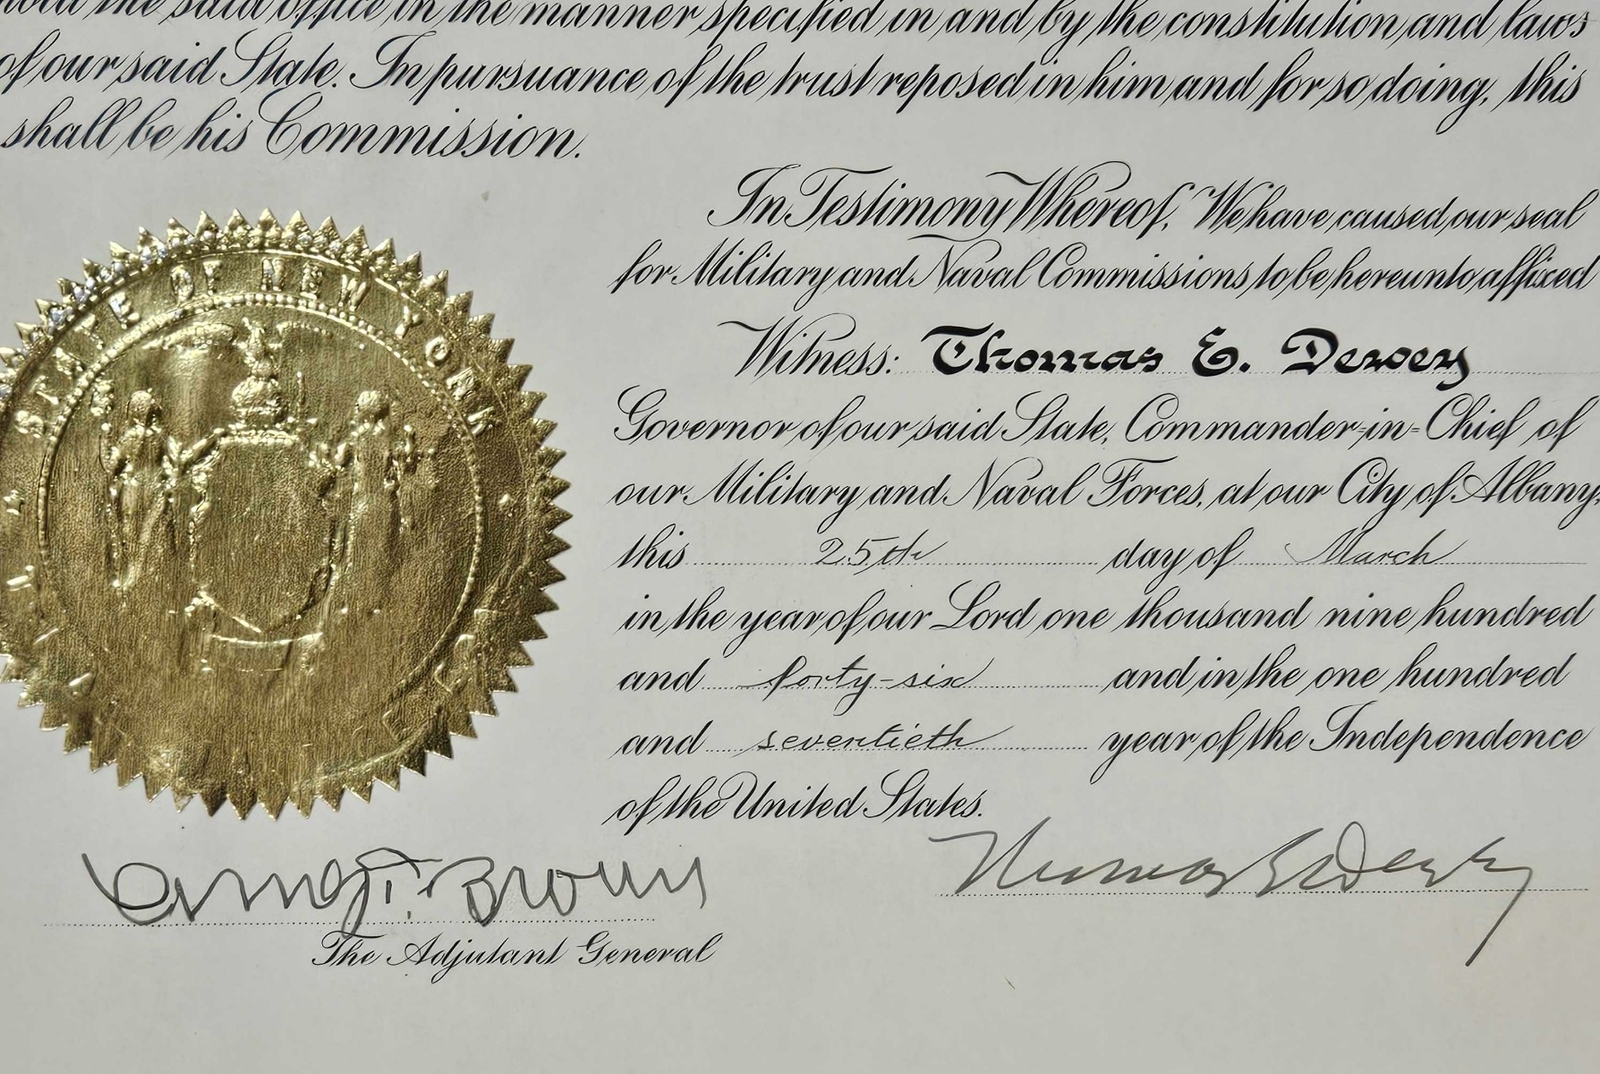 hold the said office in the manner specified in and by the constitution and laws
of our said State. In pursuance of the trust reposed in him and for so doing, this
shall be his Commission.
In Testimony Whereof, We have caused our seal
for Military and Naval Commissions to be hereunto affixed
Witness: Thomas E. Dewey
Governor of our said State, Commander-in-Chief of
our Military and Naval Forces, at our City of Albany,
this 25th day of March
in the year of our Lord one thousand nine hundred
and forty-six and in the one hundred
and seventieth year of the Independence
of the United States.
STATE OF NEW YORK
Thomas E. Dewey
Brown
The Adjutant General